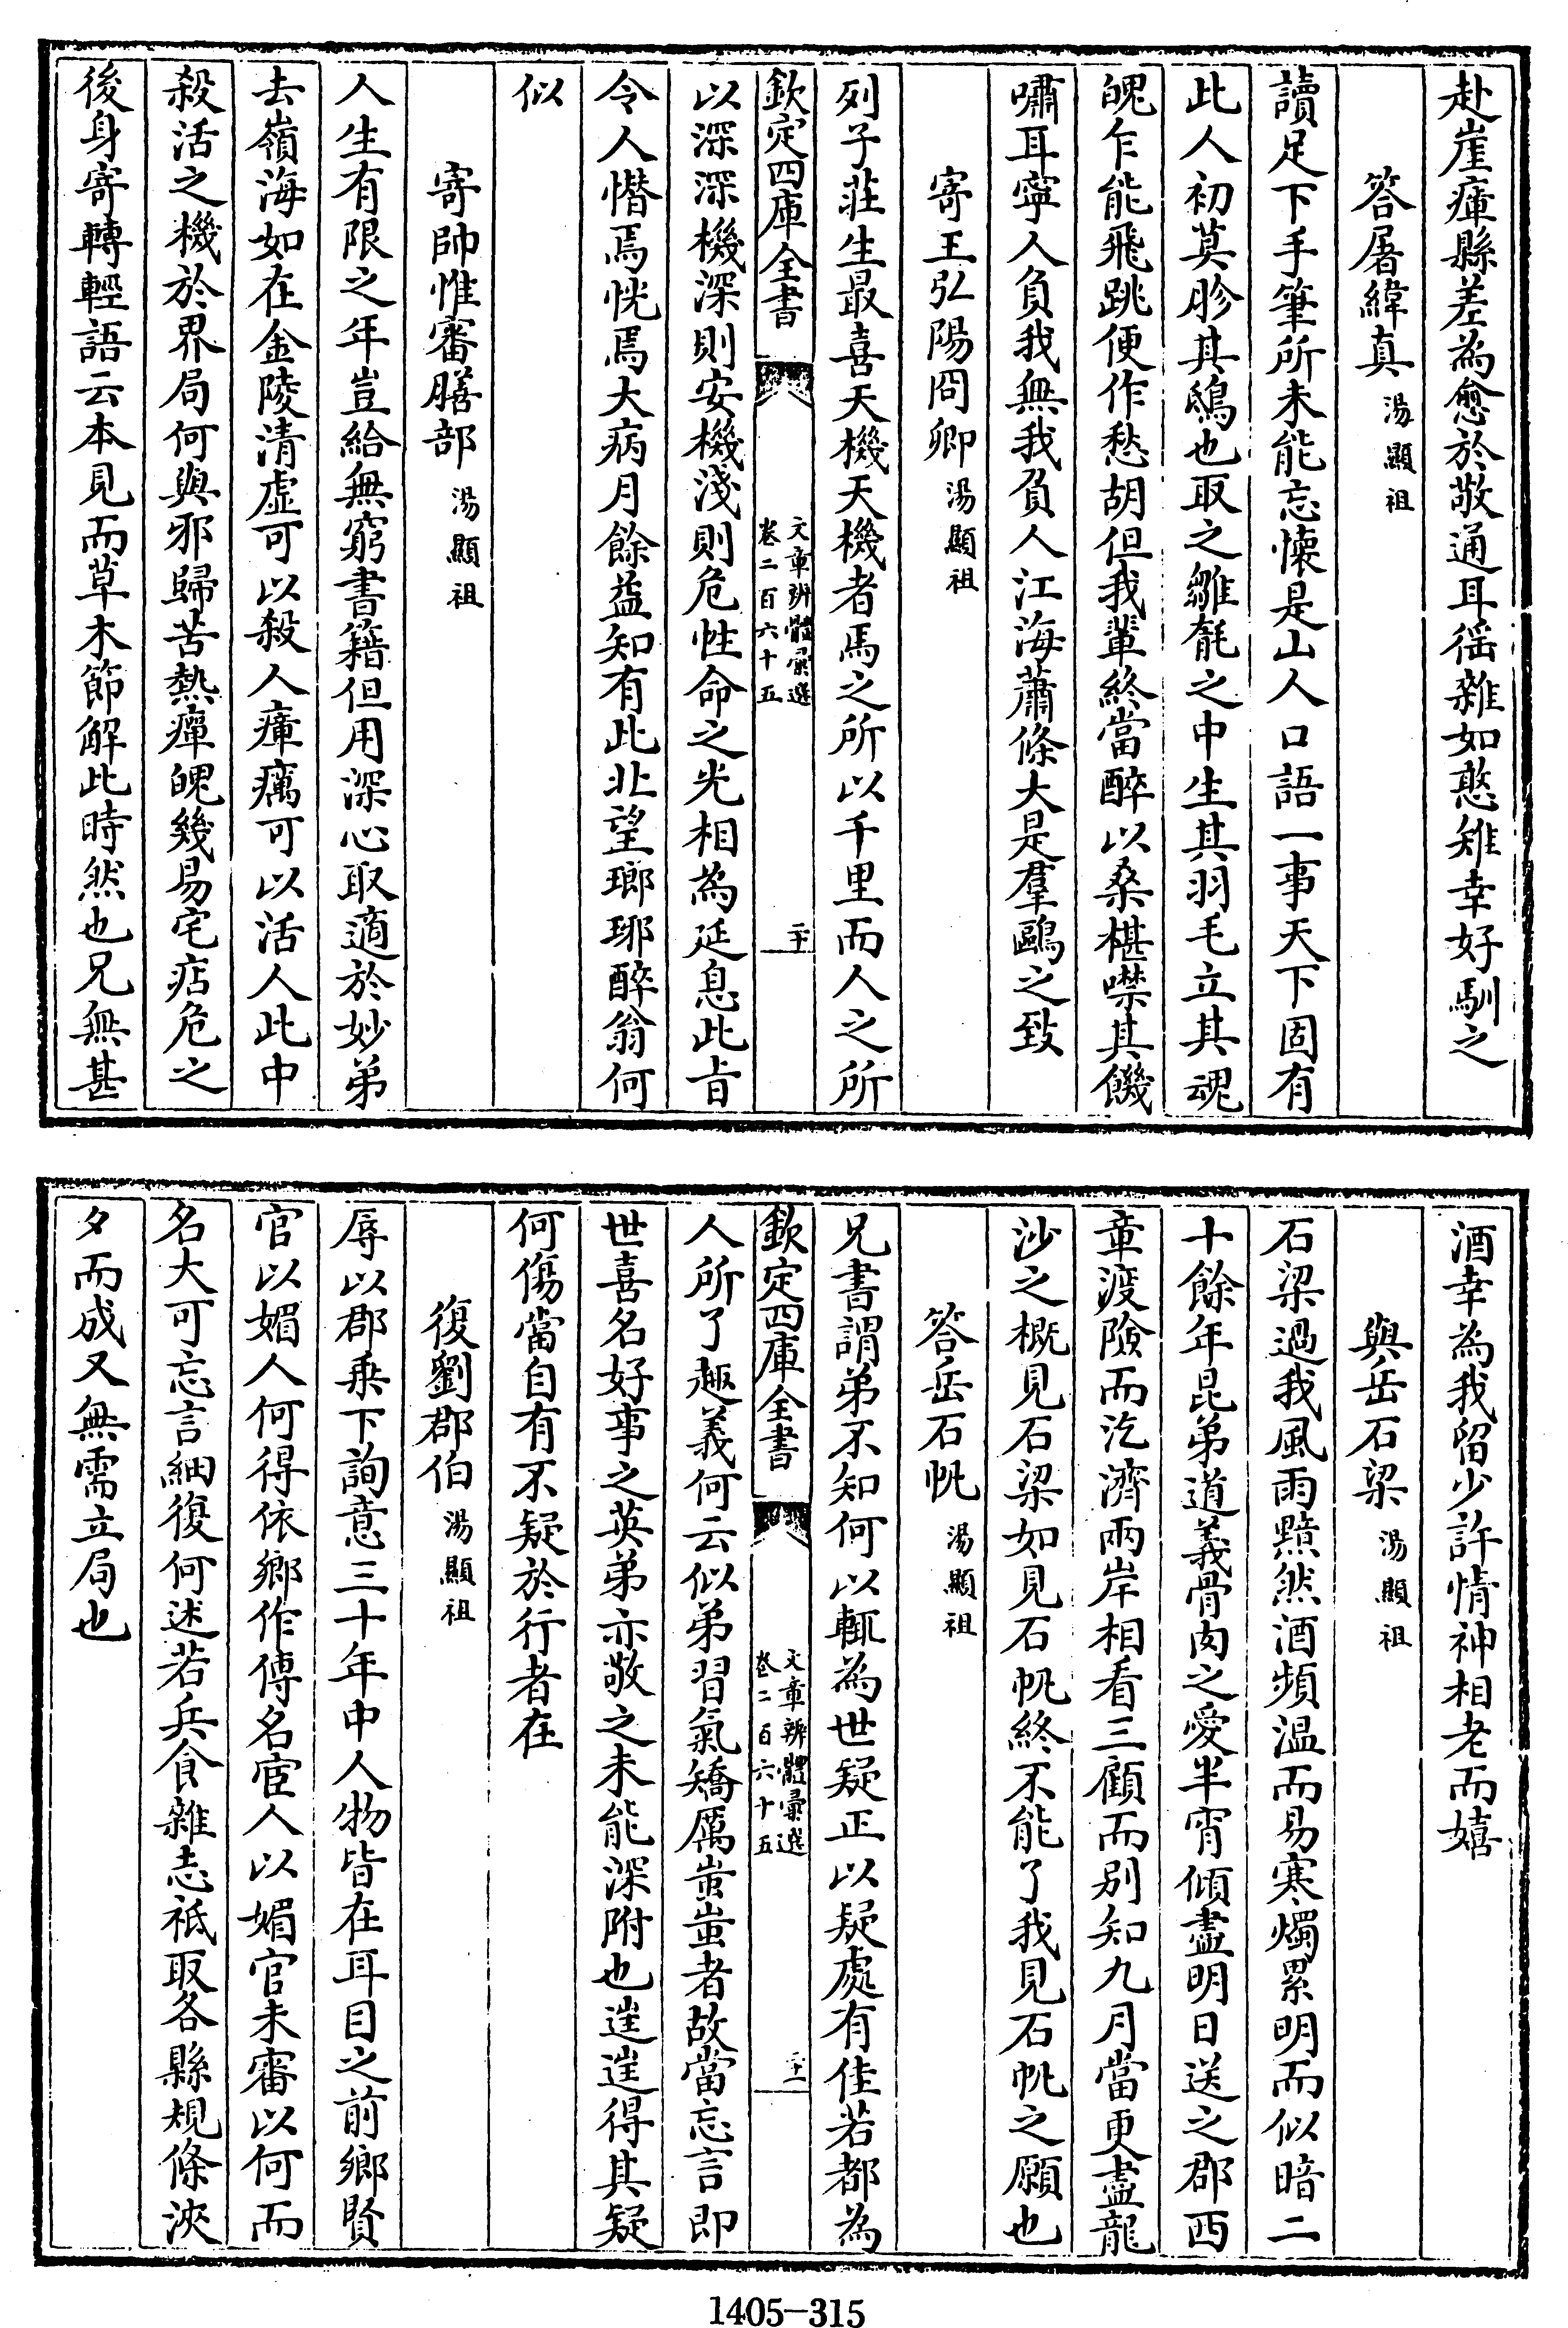 赴崖瘴縣差為愈於敬通耳徭雜如憨雉幸好馴之
答屠緯真 湯顯祖
讀足下手筆所未能忘懷是山人口語一事天下固有
此人初莫胗其鴟也取之雛㲉之中生其羽毛立其魂
魄乍能飛跳便作愁胡但我輩終當醉以桑椹噤其饑
嘯耳寧人負我無我負人江海蕭條大是羣鷗之致
寄王弘陽冏卿 湯顯祖
列子莊生最喜天機天機者馬之所以千里而人之所
欽定四庫全書 文章辨體彙選 卷二百六十五 二十
以深深機深則安機淺則危性命之光相為延息此旨
令人憯焉恍焉大病月餘益知有此北望瑯琊醉翁何
似
寄帥惟審膳部 湯顯祖
人生有限之年豈給無窮書籍但用深心取適於妙弟
去嶺海如在金陵清虛可以殺人瘴癘可以活人此中
殺活之機於界局何與邪歸苦熱癉魄幾易宅痁危之
後身寄轉輕語云本見而草木節解此時然也兄無甚
酒幸為我留少許情神相老而嬉
與岳石梁 湯顯祖
石梁過我風雨黯然酒頻溫而易寒燭累明而似暗二
十餘年昆弟道義骨肉之愛半宵傾盡明日送之郡西
章渡險而汔濟兩岸相看三顧而别知九月當更盡龍
沙之概見石梁如見石帆終不能了我見石帆之願也
答岳石帆 湯顯祖
兄書謂弟不知何以輒為世疑正以疑處有佳若都為
欽定四庫全書 文章辨體彙選 卷二百六十五 二十一
人所了趣義何云似弟習氣矯厲蚩蚩者故當忘言即
世喜名好事之英弟亦敬之未能深附也逬逬得其疑
何傷當自有不疑於行者在
復劉郡伯 湯顯祖
辱以郡乗下詢意三十年中人物皆在耳目之前鄉賢
官以媚人何得依鄉作傳名宦人以媚官未審以何而
名大可忘言細復何述若兵食雜志祗取各縣規條浹
夕而成又無需立局也
1405-315